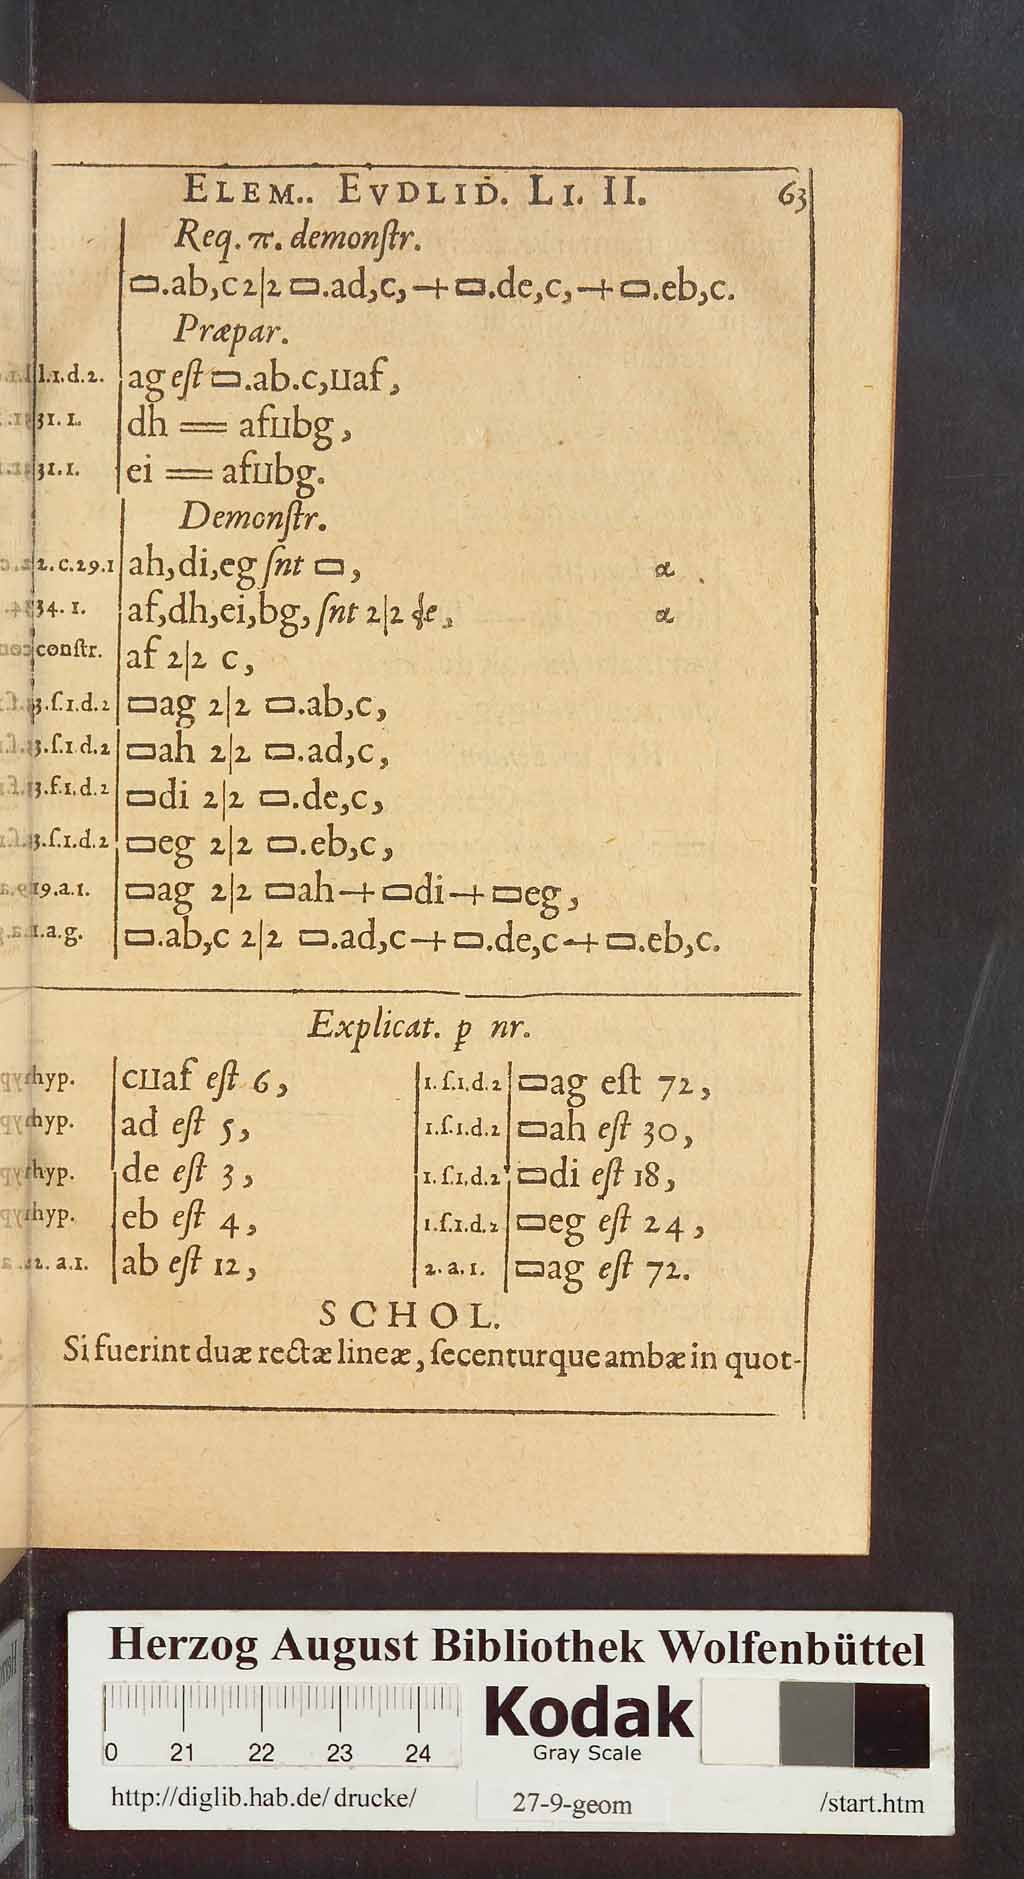 ELEM.. EVDLID. LI. II. 63
Req. π. demonſtr.
▭.ab,c 2|2 ▭.ad,c,+▭.de,c,+▭.eb,c.
Præpar.
1.d.2. ag eſt ▭.ab.c,ııaf,
31. 1. dh == afııbg,
31.1. ei == afııbg.
Demonſtr.
2.c.29.1 ah,di,eg ſnt ▭, α
34. 1. af,dh,ei,bg, ſnt 2|2 α
conſtr. af 2|2 c,
3.ſ.1.d.2 ▭ag 2|2 ▭.ab,c,
3.ſ.1.d.2 ▭ah 2|2 ▭.ad,c,
3.ſ.1.d.2 ▭di 2|2 ▭.de,c,
3.ſ.1.d.2 ▭eg 2|2 ▭.eb,c,
19.a.1. ▭ag 2|2 ▭ah+▭di+▭eg,
1.a.g. ▭.ab,c 2|2 ▭.ad,c+▭.de,c+▭.eb,c.
Explicat. ꝑ nr.
hyp. cııaf eſt 6, 1.ſ.1.d.2 ▭ag eſt 72,
hyp. ad eſt 5, 1.ſ.1.d.2 ▭ah eſt 30,
hyp. de eſt 3, 1.ſ.1.d.2 ▭di eſt 18,
hyp. eb eſt 4, 1.ſ.1.d.2 ▭eg eſt 24,
2. a.1. ab eſt 12, 2. a. 1. ▭ag eſt 72.
SCHOL.
Si fuerint duæ rectæ lineæ, ſecenturque ambæ in quot-
Herzog August Bibliothek Wolfenbüttel
Kodak
Gray Scale
0 21 22 23 24
http://diglib.hab.de/drucke/ 27-9-geom /start.htm